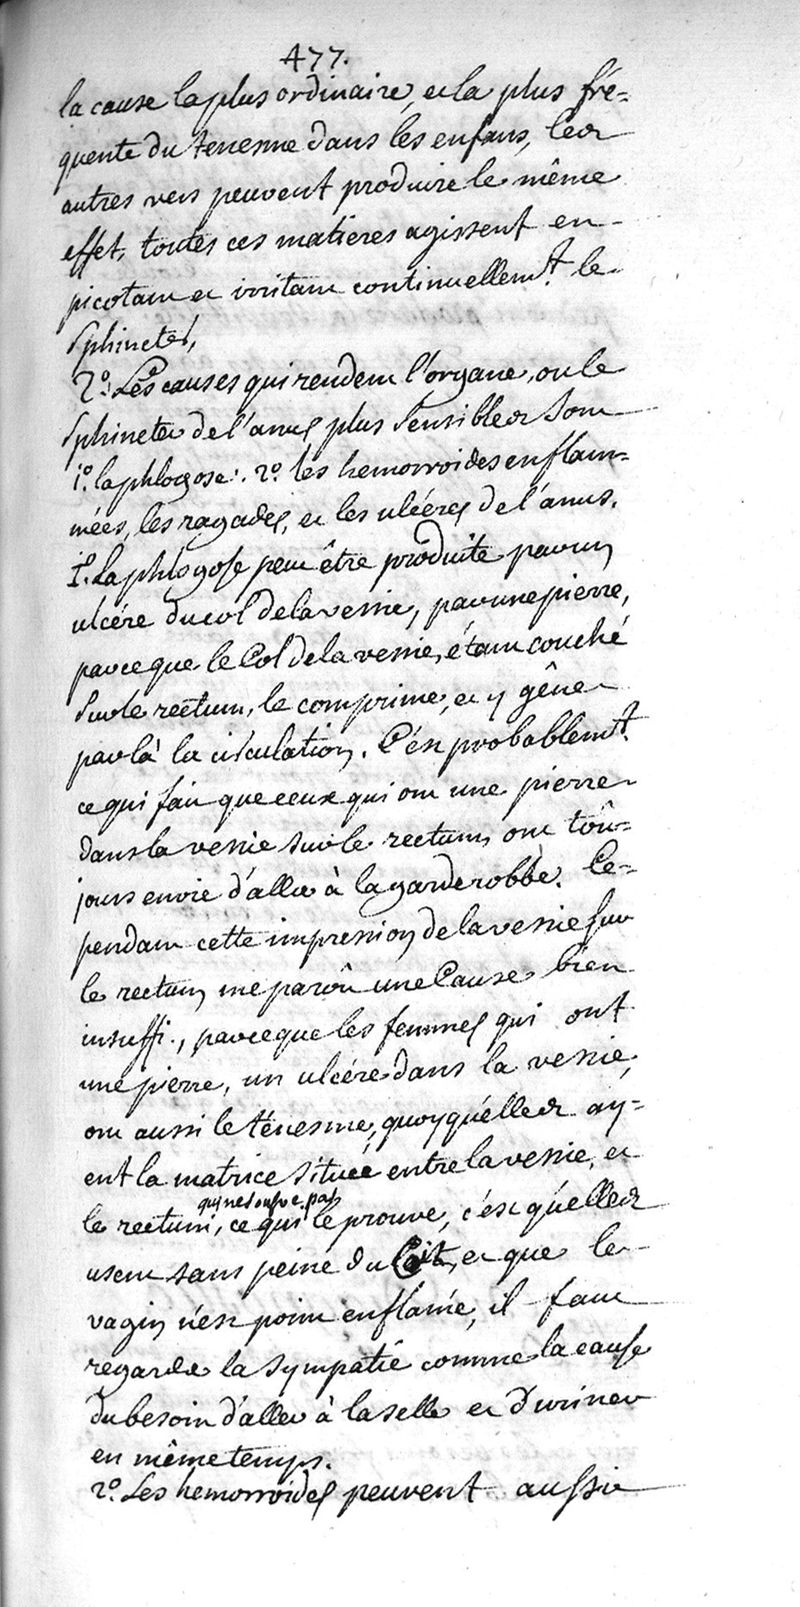 477.
la cause la plus ordinaire, et la plus fré-
quente du tenesme dans les enfans, les
autres vers peuvent produire le même
effet, toutes ces matieres agissent en
picotant et irritant continuellemt. le
Sphincter,
2º. Les causes qui rendent l'organe, ou le
Sphincter de l'anus plus Sensibles Sont
1º. la phlogose: 2º. les hemorroides enflam-
mées, les ragades, et les ulcéres de l'anus.
1º. La phlogose peut être produite par un
ulcére du col de la vessie, par une pierre,
parce que le Col de la vessie, étant couché
Sur le rectum, le comprime, et y gêne
par là la circulation. C'est probablemt.
ce qui fait que ceux qui ont une pierre
dans la vessie sur le rectum, ont toû-
jours envie d'aller à la garderobbe. Ce-
pendant cette impression de la vessie sur
le rectum me paroit une Cause bien
insuffi., parceque les femmes qui ont
une pierre, un ulcére dans la vessie,
ont aussi le ténesme, quoyqu'elles ay-
ent la matrice Située entre la vessie, et
qui ne souffre pas
le rectum, ce qui le prouve, c'est qu'elles
usent sans peine du Coit, et que le
vagin n'est point enflamé, il faut
regarder la Sympatie comme la cause
du besoin d'aller à la selle et d'uriner
en même temps.
2º. Les hemorroides peuvent aussi